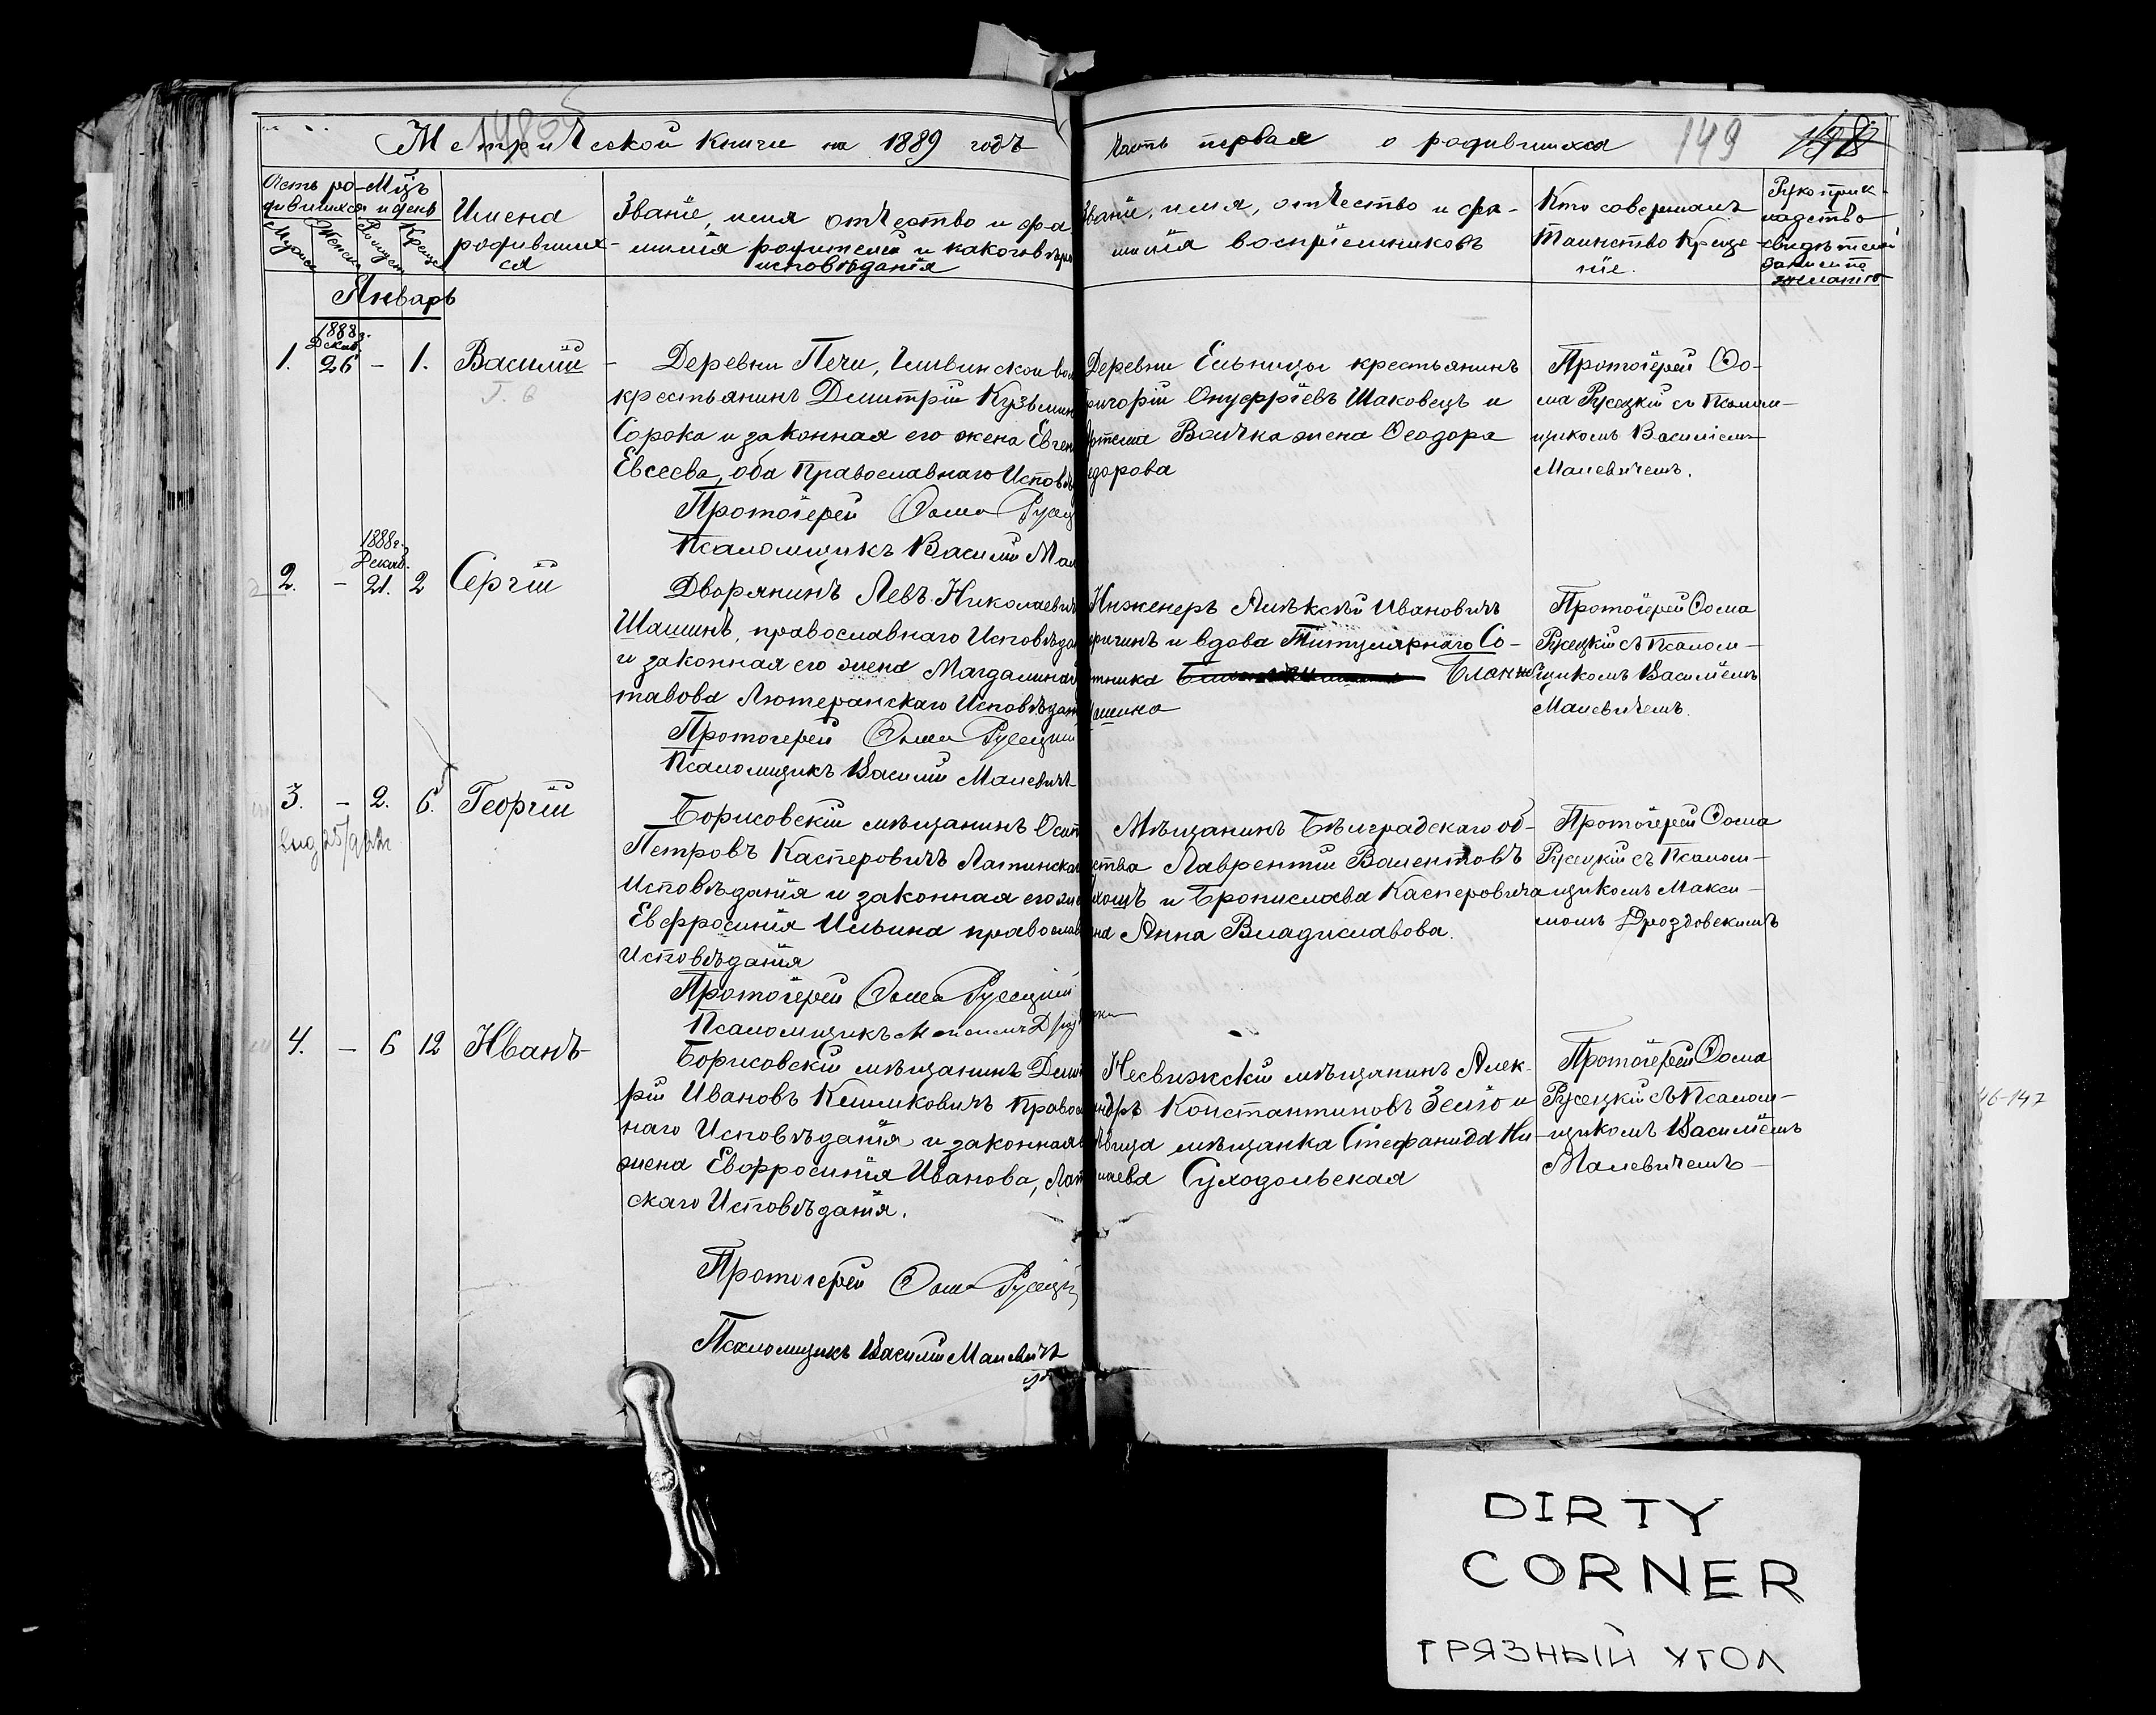 Метрической книги на 1889 годъ
Часть первая о родившихся 149
Имена родившихся
Званіе, имя отчество и фа
милія родителей и какого вѣро
исповѣданія
Званіе, имя, отчество и фа-
милія воспріемниковъ
Кто совершалъ
Таинство Креще
ніе.
Рукоприк-
ладство
свидѣтелей
записи по
желанію
Январь
1.
1888 г.
Декаб.
26 — 1. Василій —
Деревни Печи,
крестьянинъ Димитрій Кузьмин
Сорока и законная его жена Евген
Евсеева, оба Православнаго Исповѣ
Протоіерей Ѳома Русец
Псаломщикъ Василій Мал
Деревни Ельницы крестьянинъ
ригорій Онуфріевъ Шаковецъ и
ртема жена Ѳеодора
едорова
Протоіерей Ѳо-
ма Русецкій съ Псалом-
щикомъ Василіемъ
Малевичемъ.
2. —
1888 г.
Декаб.
21. 2 Сергій
Дворянинъ Левъ Николаевич
Шашинъ, православнаго Исповѣдан
и законная его жена Магдалина
тавова Лютеранскаго Исповѣдан
Протоіерей Ѳома Русецкій
Псаломщикъ Василій Малевичъ
Инженеръ Алѣксѣй Ивановичъ
ричинъ и вдова Титулярнаго Со-
тника
ашина
Протоіерей Ѳома
Русецкій съ Псалом-
щикомъ Василіемъ
Малевичемъ.
3. — 2. 6. Георгій
Борисовскій мѣщанинъ Осип
Петровъ Касперовичъ Латинска
Исповѣданія и законная его же
Евфросинія Ильина православ
Исповѣданія
Протоіерей Ѳома Русецкій
Псаломщикъ
Мѣщанинъ Бѣлградскаго об-
ства Лаврентій Валентовъ
и Брониславa Касперовича
на Анна Владиславова.
Протоіерей Ѳома
Русецкій съ Псалом-
щикомъ Макси-
момъ Дроздовскимъ
4. — 6 12 Иванъ —
Борисовскій мѣщанинъ Дими
рій Ивановъ Климковичъ Правос
наго Исповѣданія, и законная
жена Евфросинія Иванова, Лат
скаго Исповѣданія.
Протоіерей Ѳома Русецкій
Псаломщикъ Василій Малевичъ
Несвижскій мѣщанинъ Алек-
ндръ Константиновъ и
ѣвица мѣщанка Стефанида Ни-
лаева Суходольская
Протоіерей Ѳома
Русецкій съ Псалом-
щикомъ Василіемъ
Малевичемъ —
46-147
DIRTY
CORNER
ГРЯЗНЫЙ УГОЛ